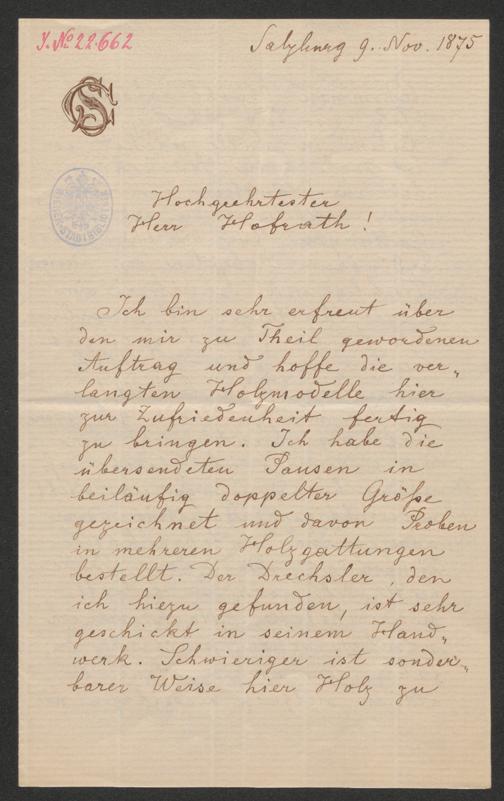 I. No 22.662
Salzburg 9. Nov. 1875
Hochgeehrtester
Herr Hofrath!
Ich bin sehr erfreut über
den mir zu Theil gewordenen
Auftrag und hoffe die ver„
langten Holzmodelle hier
zur Zufriedenheit fertig
zu bringen. Ich habe die
übersendeten Pausen in
beiläufig doppelter Größe
gezeichnet und davon Proben
in mehreren Holzgattungen
bestellt. Der Drechsler, den
ich hiezu gefunden, ist sehr
geschickt in seinem Hand„
werk. Schwieriger ist sonder„
barer Weise hier Holz zu